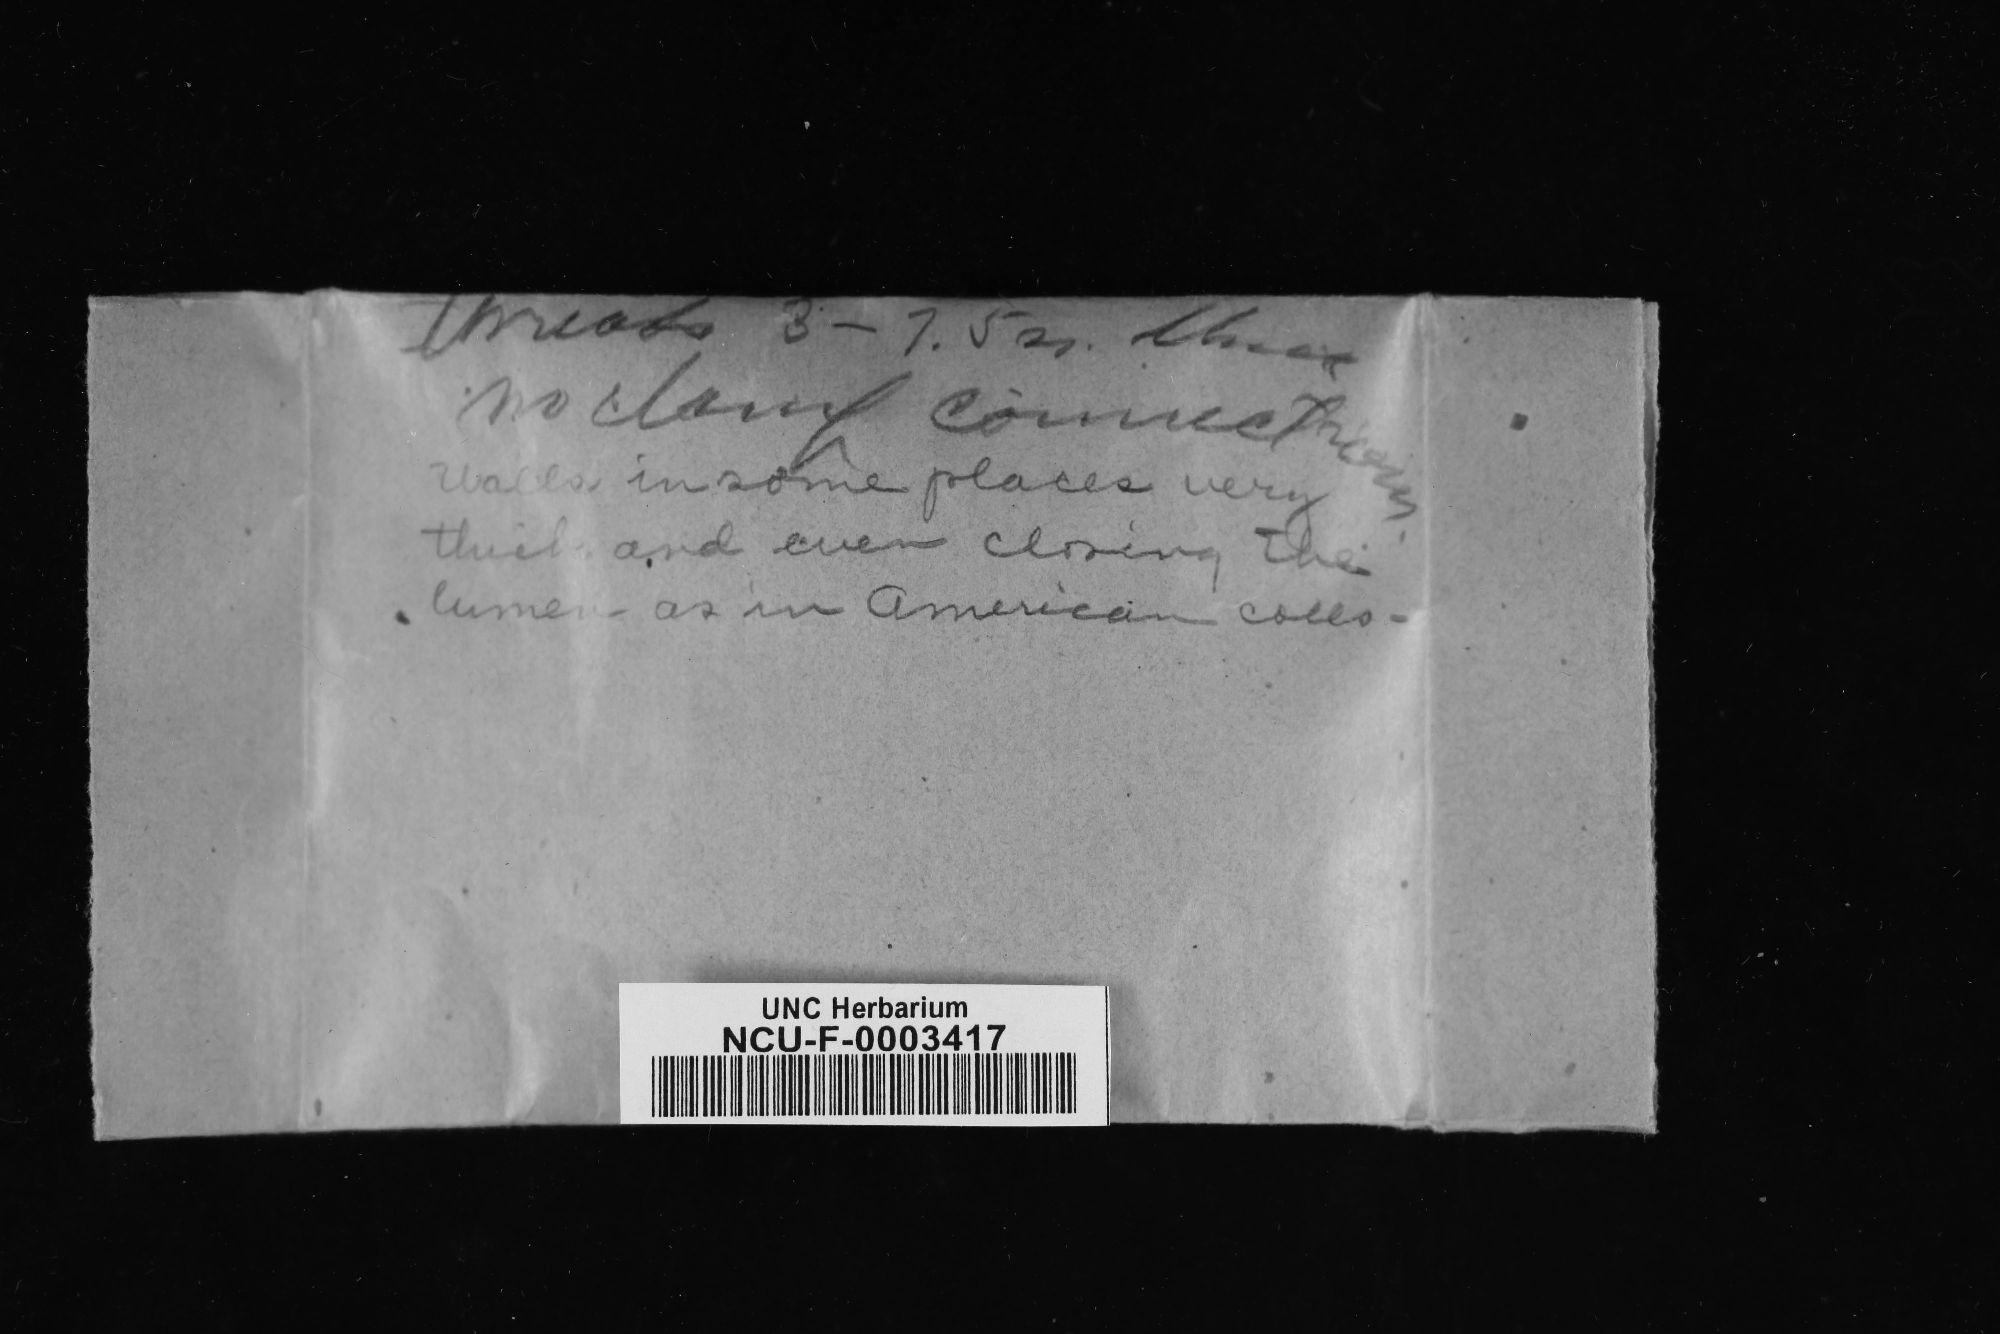 threads 3-7.5 µ. thick
no clamp connections.
Walls in some places very
thick and even closing the
lumen as in American colls-
UNC Herbarium
NCU-F-0003417